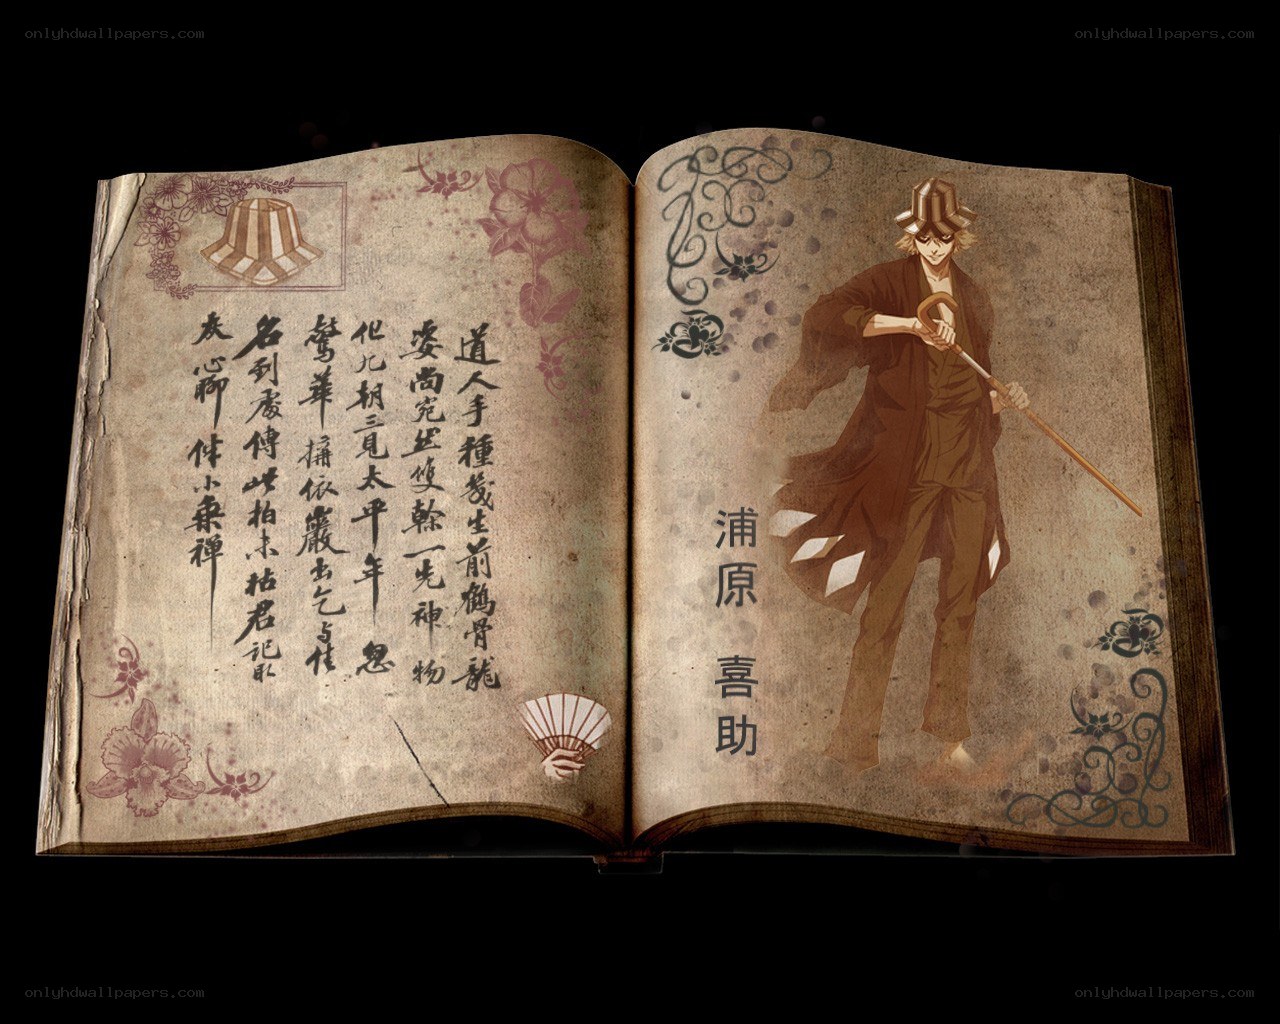 onlyhdwallpapers.com
onlyhdwallpapers.com
道人手種幾生前鶴骨龍
姿尚宛然雙幹一先神物
化九朝三見太平年忽
驚華搆依巖出乞与佳
名到處傳此柏未枯君記取
灰心聊伴小乘禅
浦原 喜助
onlyhdwallpapers.com
onlyhdwallpapers.com